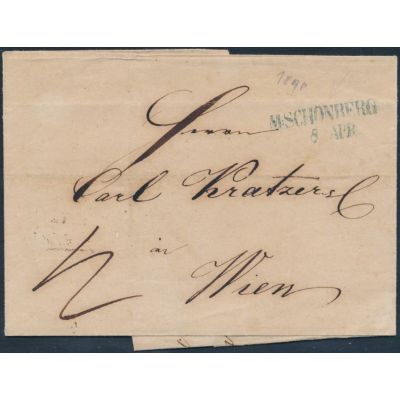 M:SCHÖNBERG
8 APR
Herrn
Carl Kratzer &
in
Wien